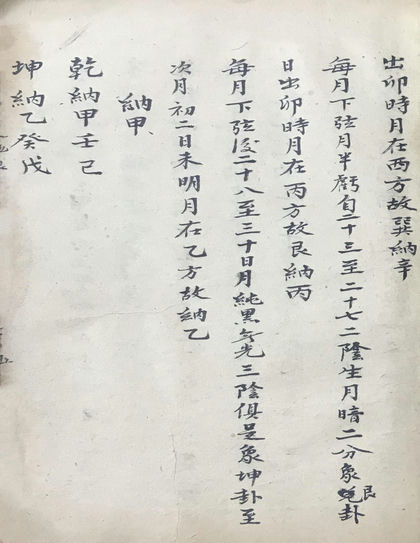 出卯時月在西方故巽納辛
每月下弦月半虧自二十三至二十七二陰生月暗二分象艮卦
日出卯時月在丙方故艮納丙
每月下弦後二十八至三十日月純黑無光三陰俱足象坤卦至
次月初二日未明月在乙方故納乙
納甲
乾納甲壬己
坤納乙癸戊